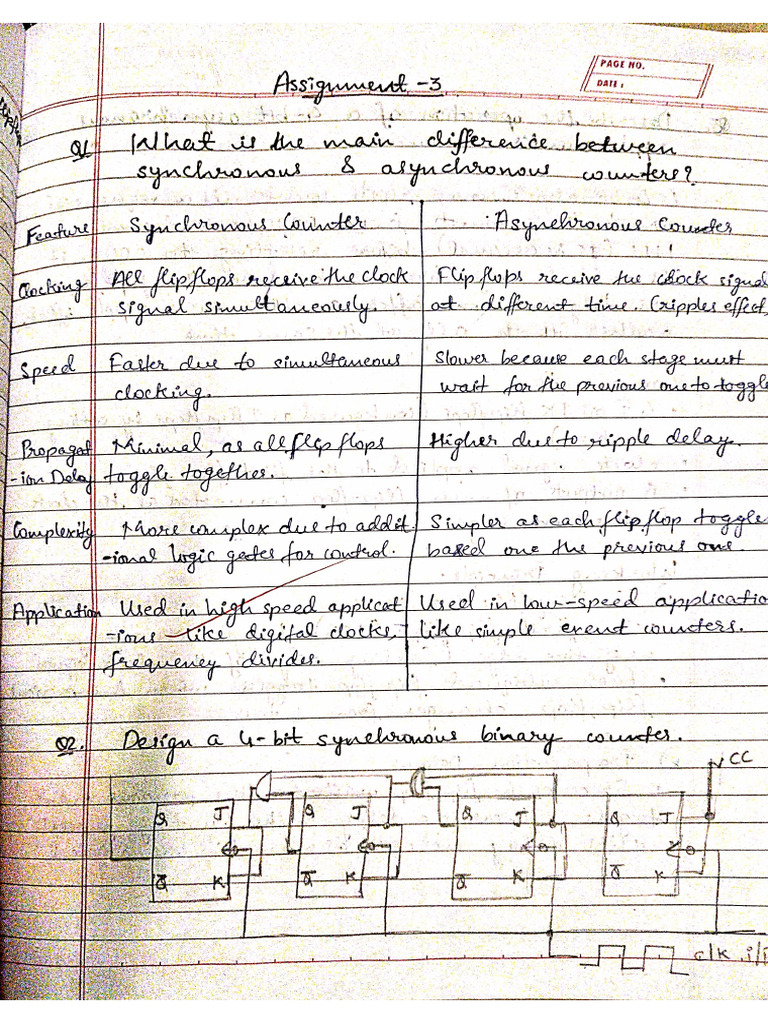 PAGE NO.
DATE :
Assignment -3
Q1 What is the main difference between
synchronous & asynchronous counters?
Feature Synchronous Counter Asynchronous Counter
Clocking All flipflops receive the clock Flipflops receive the clock signal
signal simultaneously. at different time. (ripples effect,
Speed Faster due to simultaneous Slower because each stage must
clocking. wait for the previous one to toggle
Propagat Minimal, as all flip flops Higher due to ripple delay.
-ion Delay toggle together.
Complexity More complex due to addit Simpler as each flip flop toggle
-ional logic gates for control. based one the previous one.
Application Used in high speed applicat Used in low-speed applicatio
-ions like digital clocks, like simple event counters.
frequency divides.
Q2. Design a 4-bit synchronous binary counter.
VCC
Q J Q J Q J Q J
Q̅ K Q̅ K Q̅ K Q̅ K
clk i/p